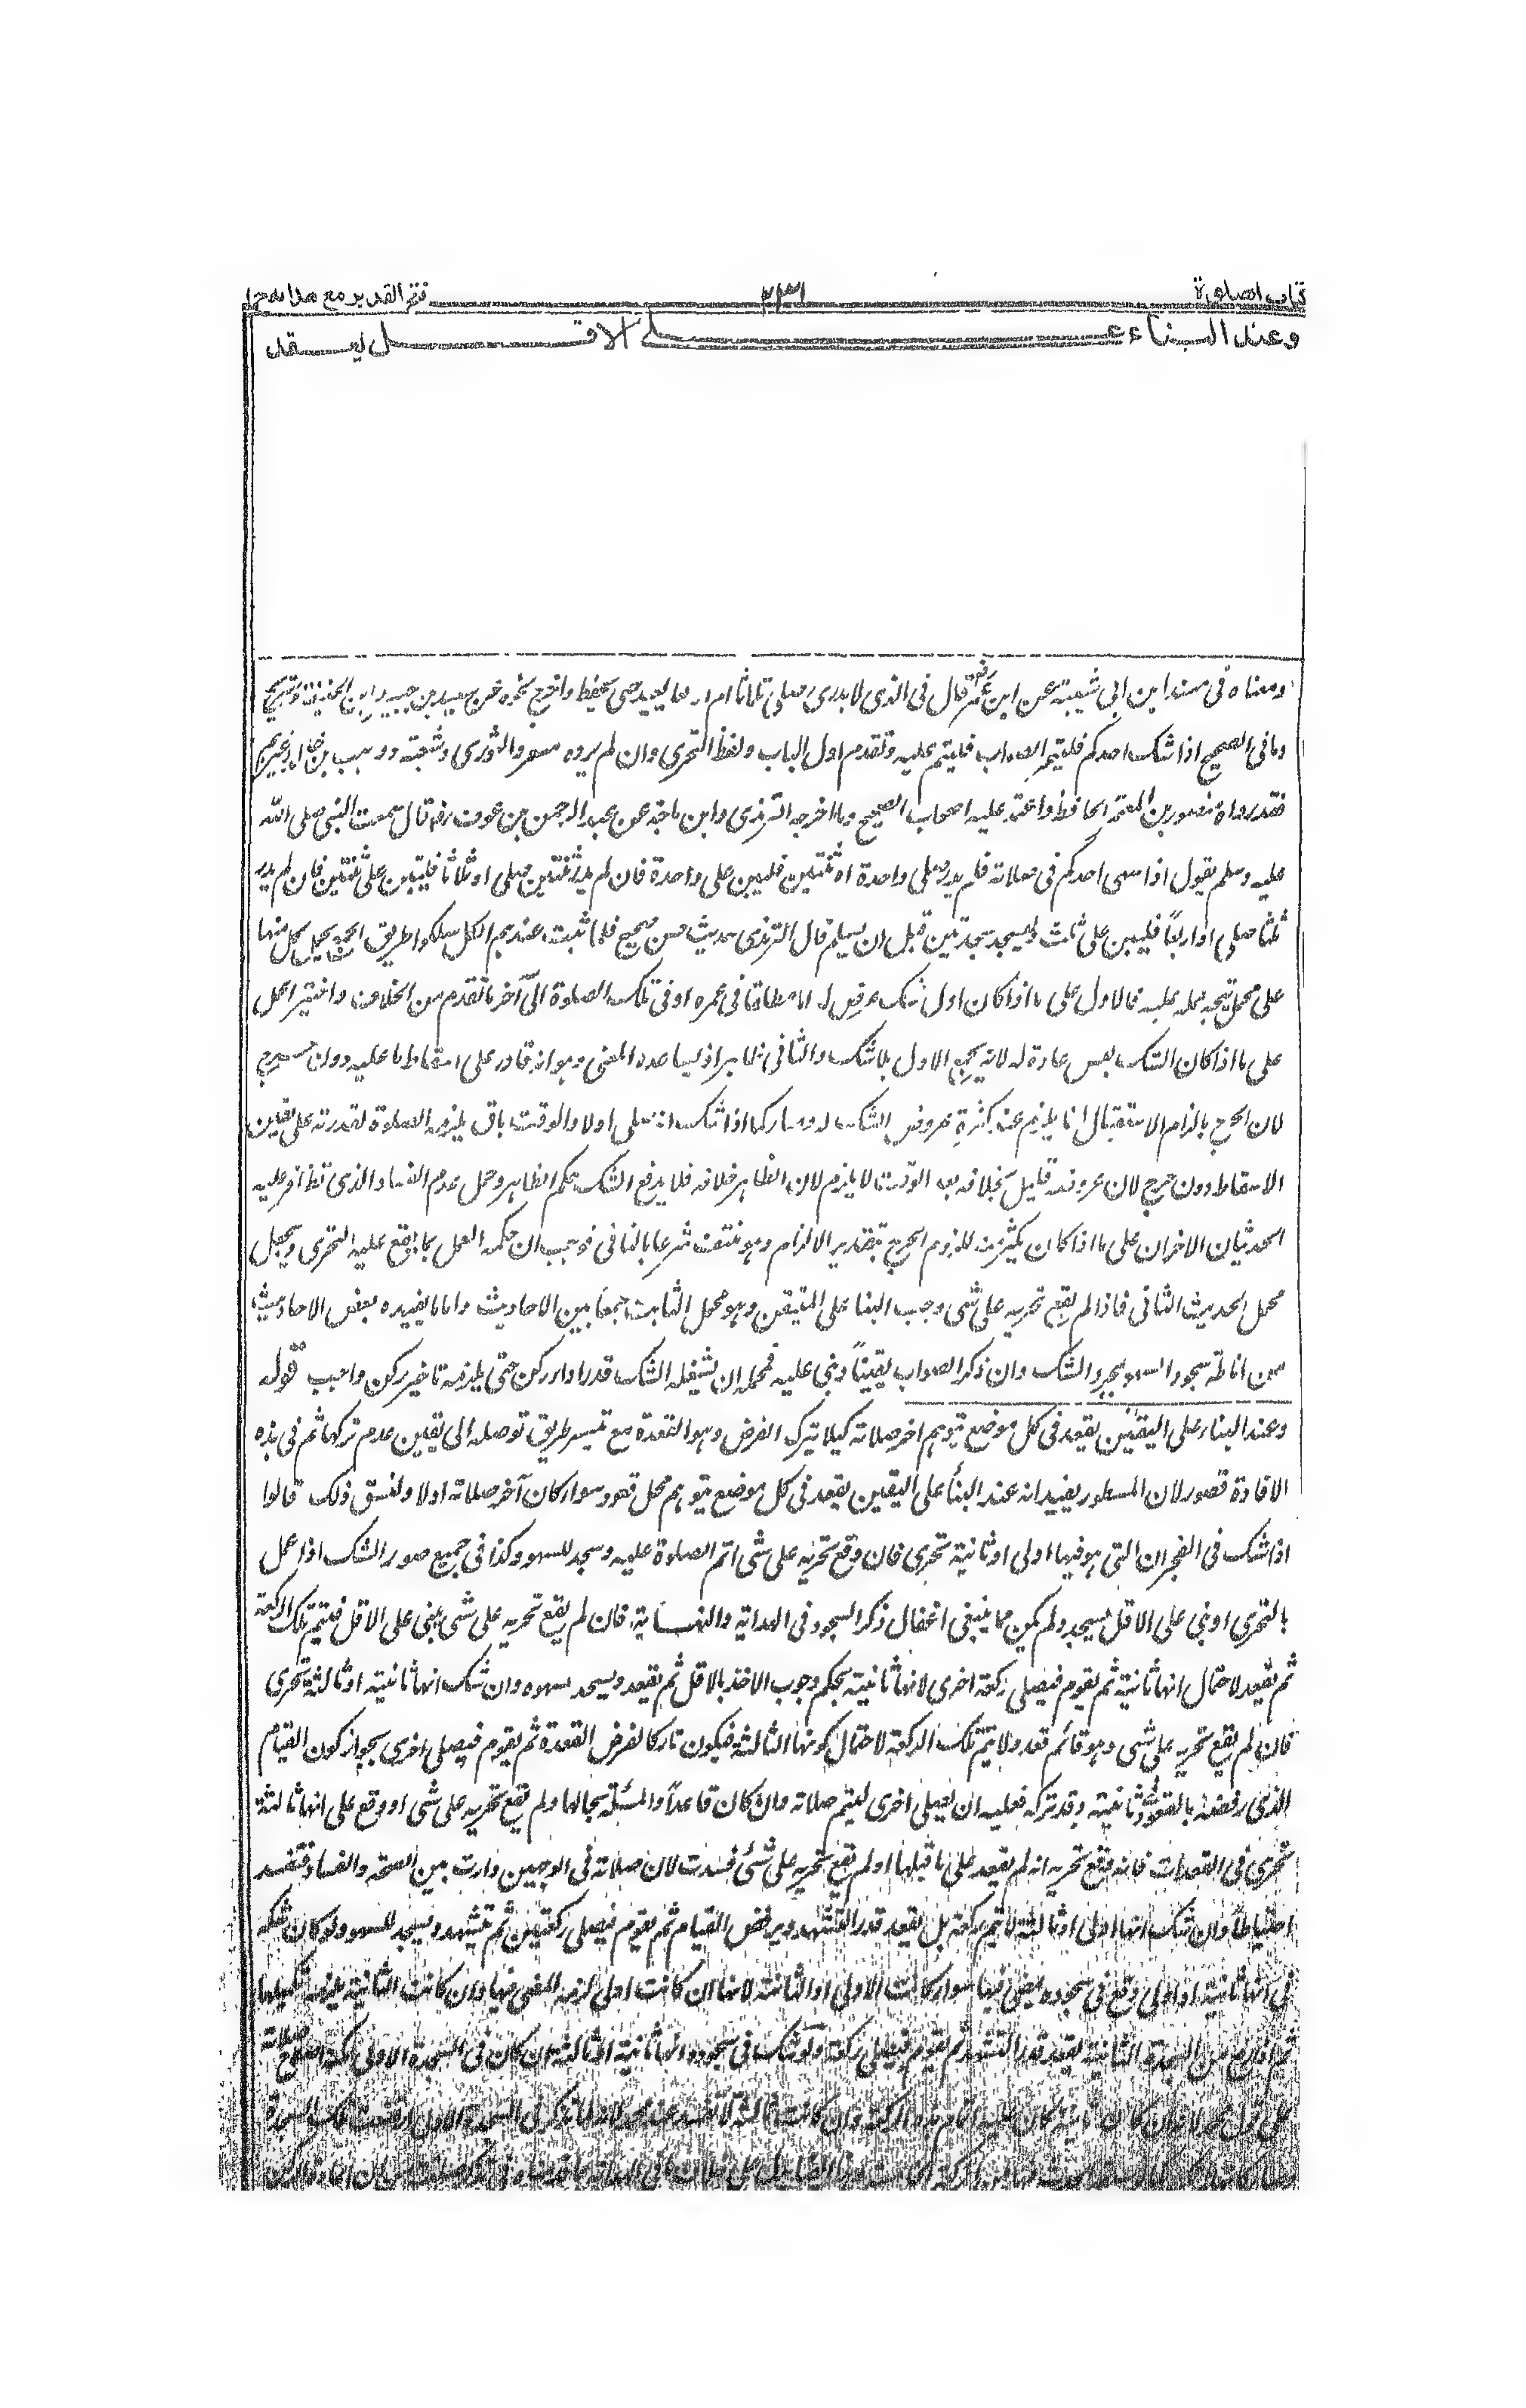 كتاب الصلوة
فتح القدير مع هدايه ج ا
وعند البناء على الاقل يقعد
ومعناه فى مسند ابن ابى شيبة عن ابن عمر قال فى الذى لا يدرى صلى ثلاثا ام اربعا يعيد حتى يحفظ واخرج نحوه عن سعيد بن جبير وابن الحنفية وشريح
وما فى الصحيح اذا شك احدكم فليتحر الصواب فليتم عليه وتقدم اول الباب ولفظ التحرى وان لم يروه مسعر والثورى وشعبة ووهيب بن خالد وغيرهم
فقد رواه منصور بن المعتمر الحافظ واعتمد عليه اصحاب الصحيح وما اخرجه الترمذى وابن ماجة عن عبد الرحمن بن عوف رض قال سمعت النبى صلى الله
عليه وسلم يقول اذا سهى احدكم فى صلاته فلم يدر صلى واحدة او ثنتين فليبن على واحدة فان لم يدر ثنتين صلى او ثلاثا فليبن على ثنتين فان لم يدر
ثلثا صلى او اربعاً فليبن على ثلث وليسجد سجدتين قبل ان يسلم قال الترمذى حديث حسن صحيح فلما ثبتت عندهم الكل سلكوا طريق الجمع بحمل كل منها
على محمل يتجه حمله عليه فالاول على ما اذا كان اول شك عرض له اما مطلقا فى عمره او فى تلك الصلوة الى آخر ما تقدم من الخلاف واختير الحمل
على ما اذا كان الشك ليس عادة له لانه يجمع الاول بلا شك والثانى ظاهرا اذ يساعده المعنى وهو انه قادر على اسقاط ما عليه دون حرج
لان الحرج بالزام الاستقبال انما يلزم عند كثرة عروض الشك له وصار كما اذا شك انه صلى اولا والوقت باق يلزمه الصلوة لقدرته على يقين
الاسقاط دون حرج لان عروضه قليل بخلافه بعد الوقت لا يلزم لان الظاهر خلافه فلا يرفع الشك حكم الظاهر وحمل عدم الفساد الذى تظافر عليه
الحديثان الاخران على ما اذا كان يكثر منه للزوم الحرج بتقدير الالزام وهو منتف شرعا بالنافى فوجب ان حكمه العمل بما يقع عليه التحرى ويجعل
محمل الحديث الثانى فاذا لم يقع تحريه على شى وجب البناء على المتيقن وهو محمل الثابت جمعا بين الاحاديث واما ما يفيده بعض الاحاديث
من اناطة سجود السهو بمجرد الشك وان ذكر الصواب يقيناً وبنى عليه فمحمله ان يشغله الشك قدر اداء ركن حتى يلزمه تاخير ركن واجب قوله
وعند البناء على اليقين يقعد فى كل موضع يتوهم آخر صلاته كيلا يترك الفرض وهو القعدة مع تيسر طريق توصله الى يقين عدم تركها ثم فى هذه
الافادة قصور لان المسطور يفيد انه عند البناء على اليقين يقعد فى كل موضع يتوهم محل قعود سواء كان آخر صلاته اولا ولنسق ذلك قالوا
اذا شك فى الفجر ان التى هو فيها اولى او ثانية تحرى فان وقع تحريه على شى اتم الصلوة عليه وسجد للسهو وكذا فى جميع صور الشك اذا عمل
بالتحرى او بنى على الاقل يسجد ولم يكن مما ينبغى اغفال ذكر السجود فى الهداية والنهاية فان لم يقع تحريه على شى يبنى على الاقل فيتم تلك الركعة
ثم يقعد لاحتمال انها ثانية ثم يقوم فيصلى ركعة اخرى لانها ثانية بحكم وجوب الاخذ بالاقل ثم يقعد ويسجد لسهوه وان شك انها ثانية او ثالثة تحرى
فان لم يقع تحريه على شى وهو قائم قعد ولا يتم تلك الركعة لاحتمال كونها الثالثة فيكون تاركا لفرض القعدة ثم يقوم فيصلى اخرى بجواز كون القيام
الذى رفضه بالقعود ثانية وقد تركه فعليه ان يصلى اخرى ليتم صلاته وان كان قاعداً والمسئلة بحالها ولم يقع تحريه على شى او وقع على انها ثالثة
تحرى فى القعدات فانه فوقع تحريه انه لم يقعد على ما قبلها او لم يقع تحريه على شئ فسدت لان صلاته فى الوجهين دارت بين الصحة والفساد فتفسد
احتياطاً وان شك انها اولى او ثالثة لا يتم ركعة بل يقعد قدر التشهد ويرفض القيام ثم يقوم فيصلى ركعتين ثم يتشهد ويسجد للسهو ولو كان شكه
فى انها ثانية او اولى وقع فى سجوده يمضى فيها سواء كانت الاولى او الثانية لانها ان كانت اولى لزمه المضى فيها وان كانت الثانية يلزمه تكميلها
ثم اذا رفع من السجدة الثانية يقعد قدر التشهد ثم يقوم فيصلى ركعة ولو شك فى سجوده انها ثانية او ثالثة ان كان فى السجدة الاولى